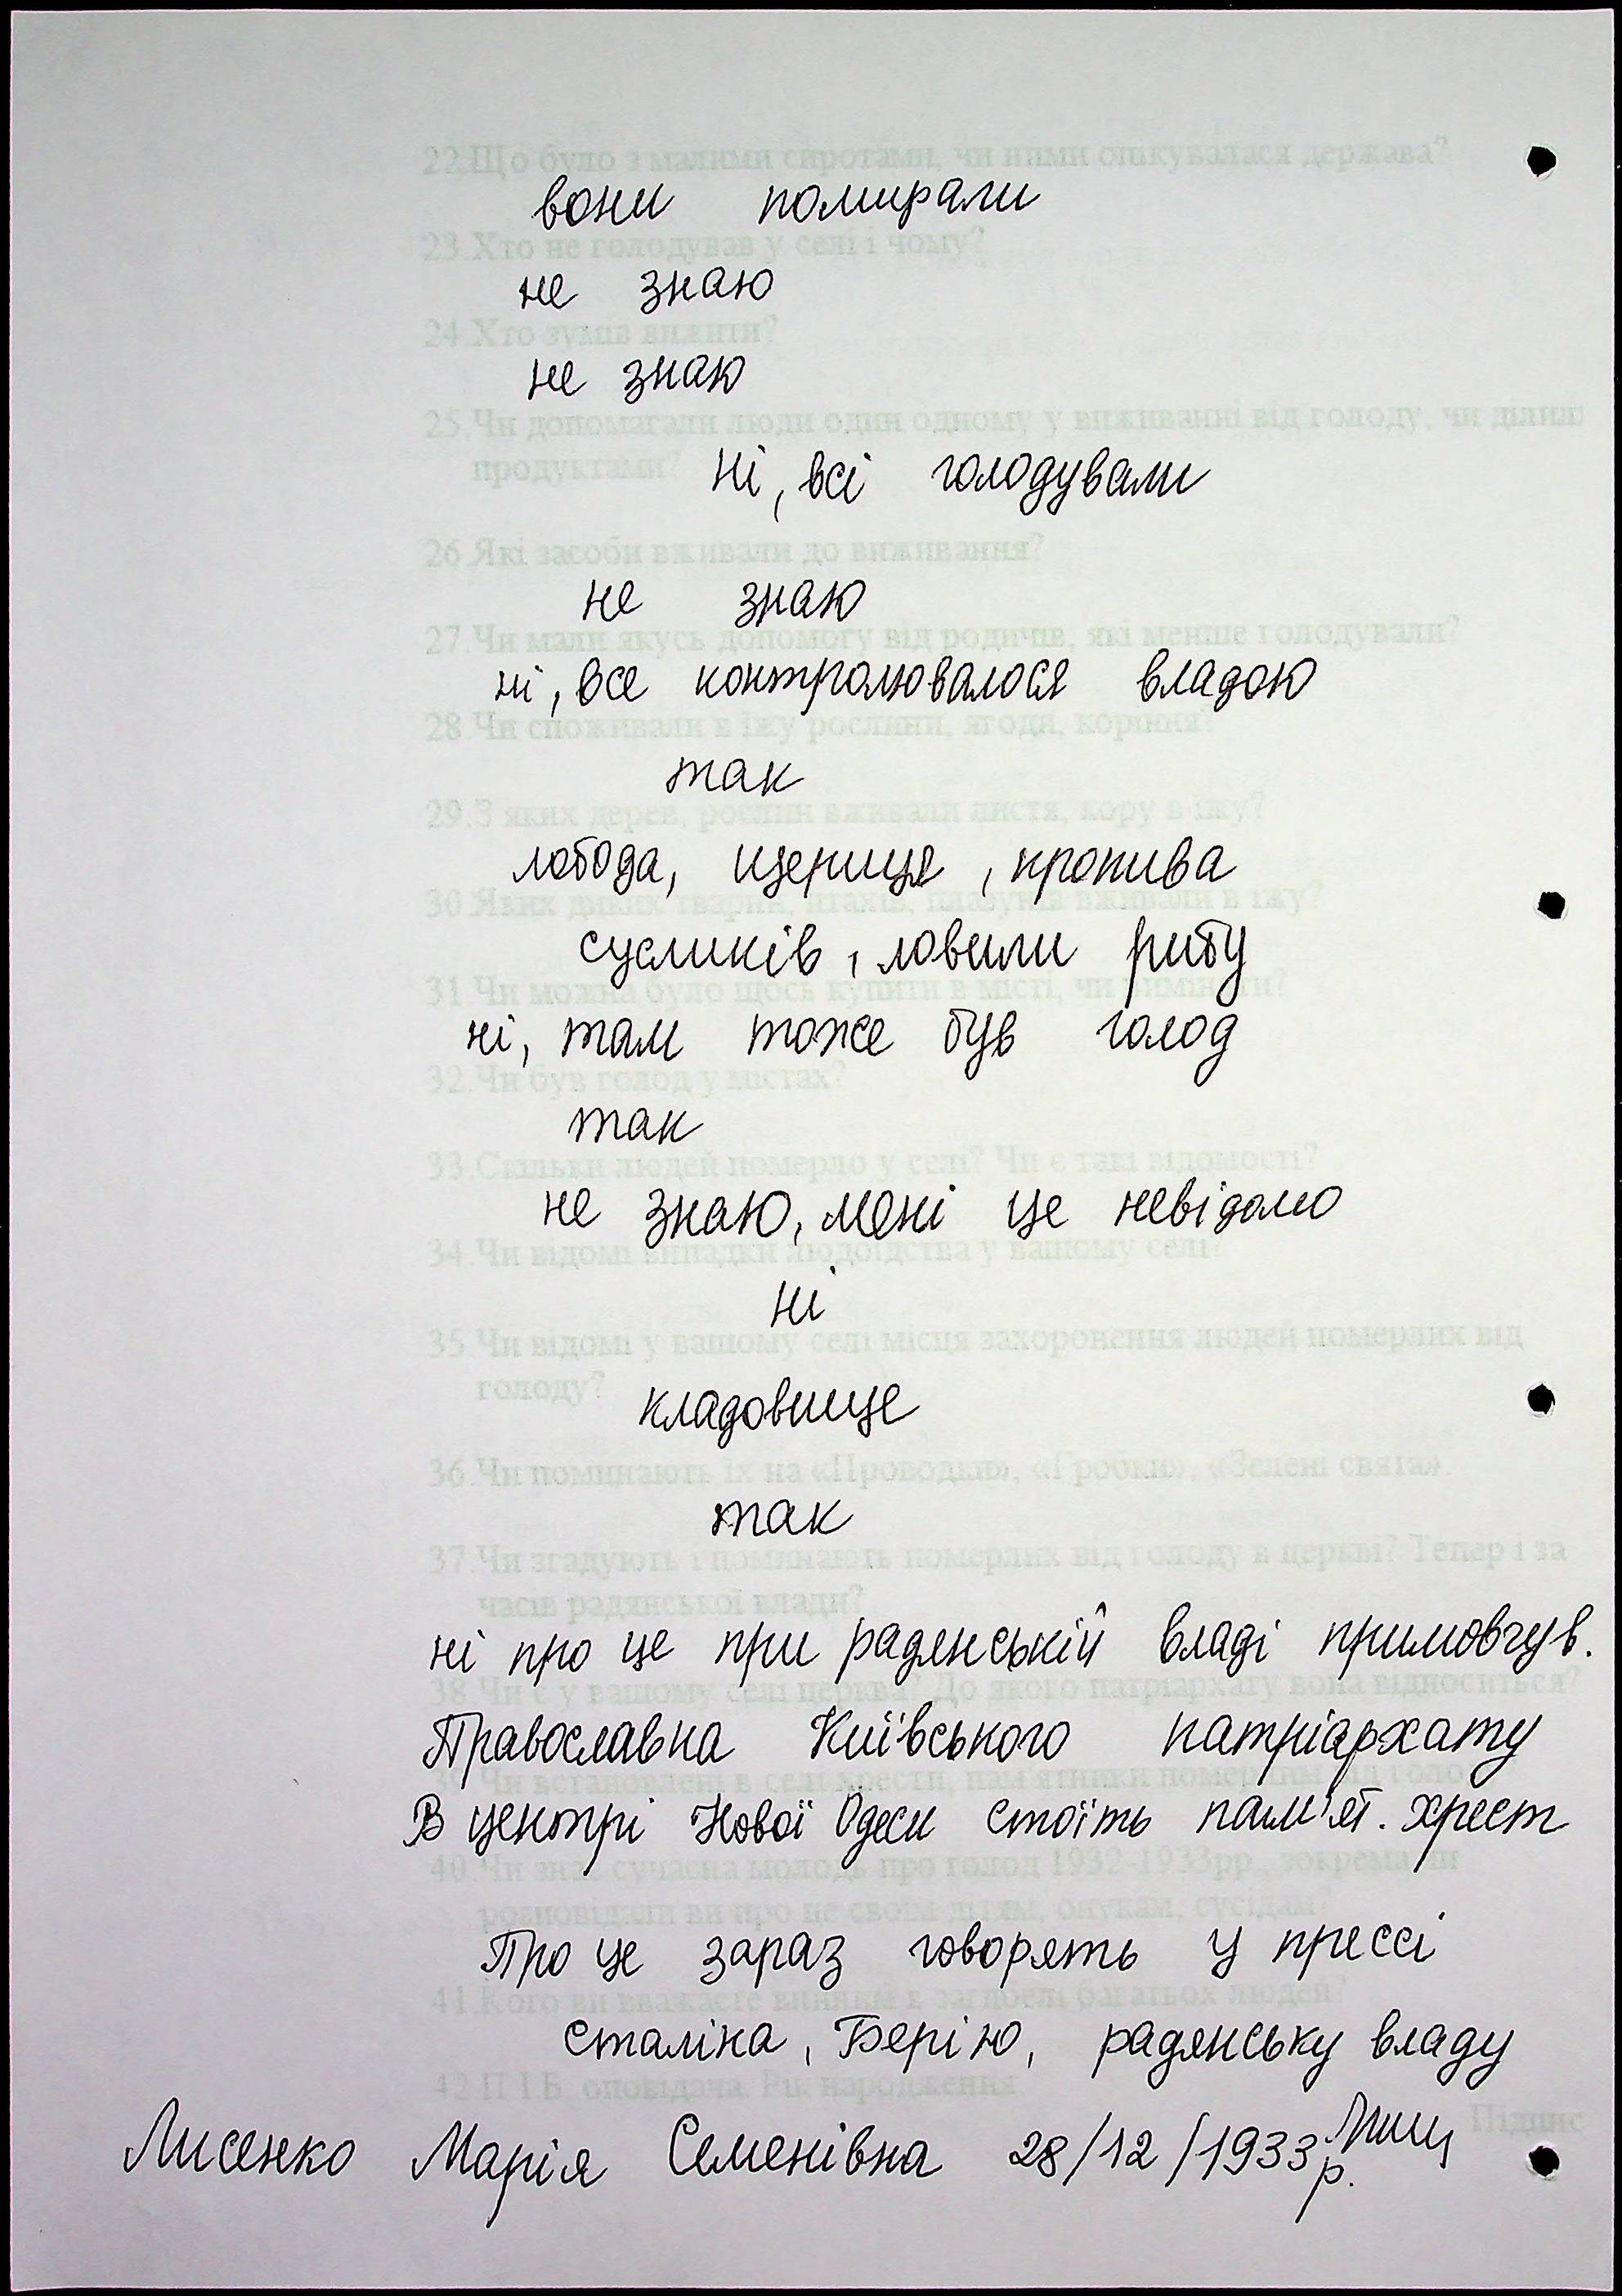 22.Що було з малими сиротами, чи ними опікувалася держава?
вони помирали
23.Хто не голодував у селі і чому?
не знаю
24.Хто зумів вижити?
не знаю
25.Чи допомагали люди один одному у виживанні від голоду, чи ділили
продуктами? Ні, всі голодували
26.Які засоби вживали до виживання?
не знаю
27.Чи мали якусь допомогу від родичів, які менше голодували?
ні, все контролювалося владою
28.Чи споживали в їжу рослини, ягоди, коріння?
так
29.З яких дерев, рослин вживали листя, кору в їжу?
лобода, щериця, кропива
30.Яких диких тварин, птахів, плазунів вживали в їжу?
сусликів, ловили рибу
31.Чи можна було щось купити в місті, чи виміняти?
ні, там тоже був голод
32.Чи був голод у містах?
так
33.Скільки людей померло у селі? Чи є такі відомості?
не знаю, мені це невідомо
34.Чи відомі випадки людоїдства у вашому селі?
ні
35.Чи відомі у вашому селі місця захоронення людей померлих від
голоду?
кладовище
36.Чи поминають їх на «Проводки», «Гробки», «Зелені свята».
так
37.Чи згадують і поминають померлих від голоду в церкві? Тепер і за
часів радянської влади?
ні про це при радянській владі примовчув.
38.Чи є у вашому селі церква? До якого патріархату вона відноситься?
Православна Київського патріархату
39.Чи встановлені в селі хрести, пам'ятники померлим від голоду
В центрі Нової Одеси стоїть пам'ят. хрест
40.Чи знає сучасна молодь про голод 1932-1933рр., зокрема чи
розповідали ви про це своїм дітям, онукам, сусідам?
Про це зараз говорять у прессі
41.Кого ви вважаєте винним в загибелі багатьох людей?
Сталіна, Берію, радянську владу
42.П.І.Б. оповідача. Рік народження
Підпис
Лисенко Марія Семенівна 28/12/1933 р.